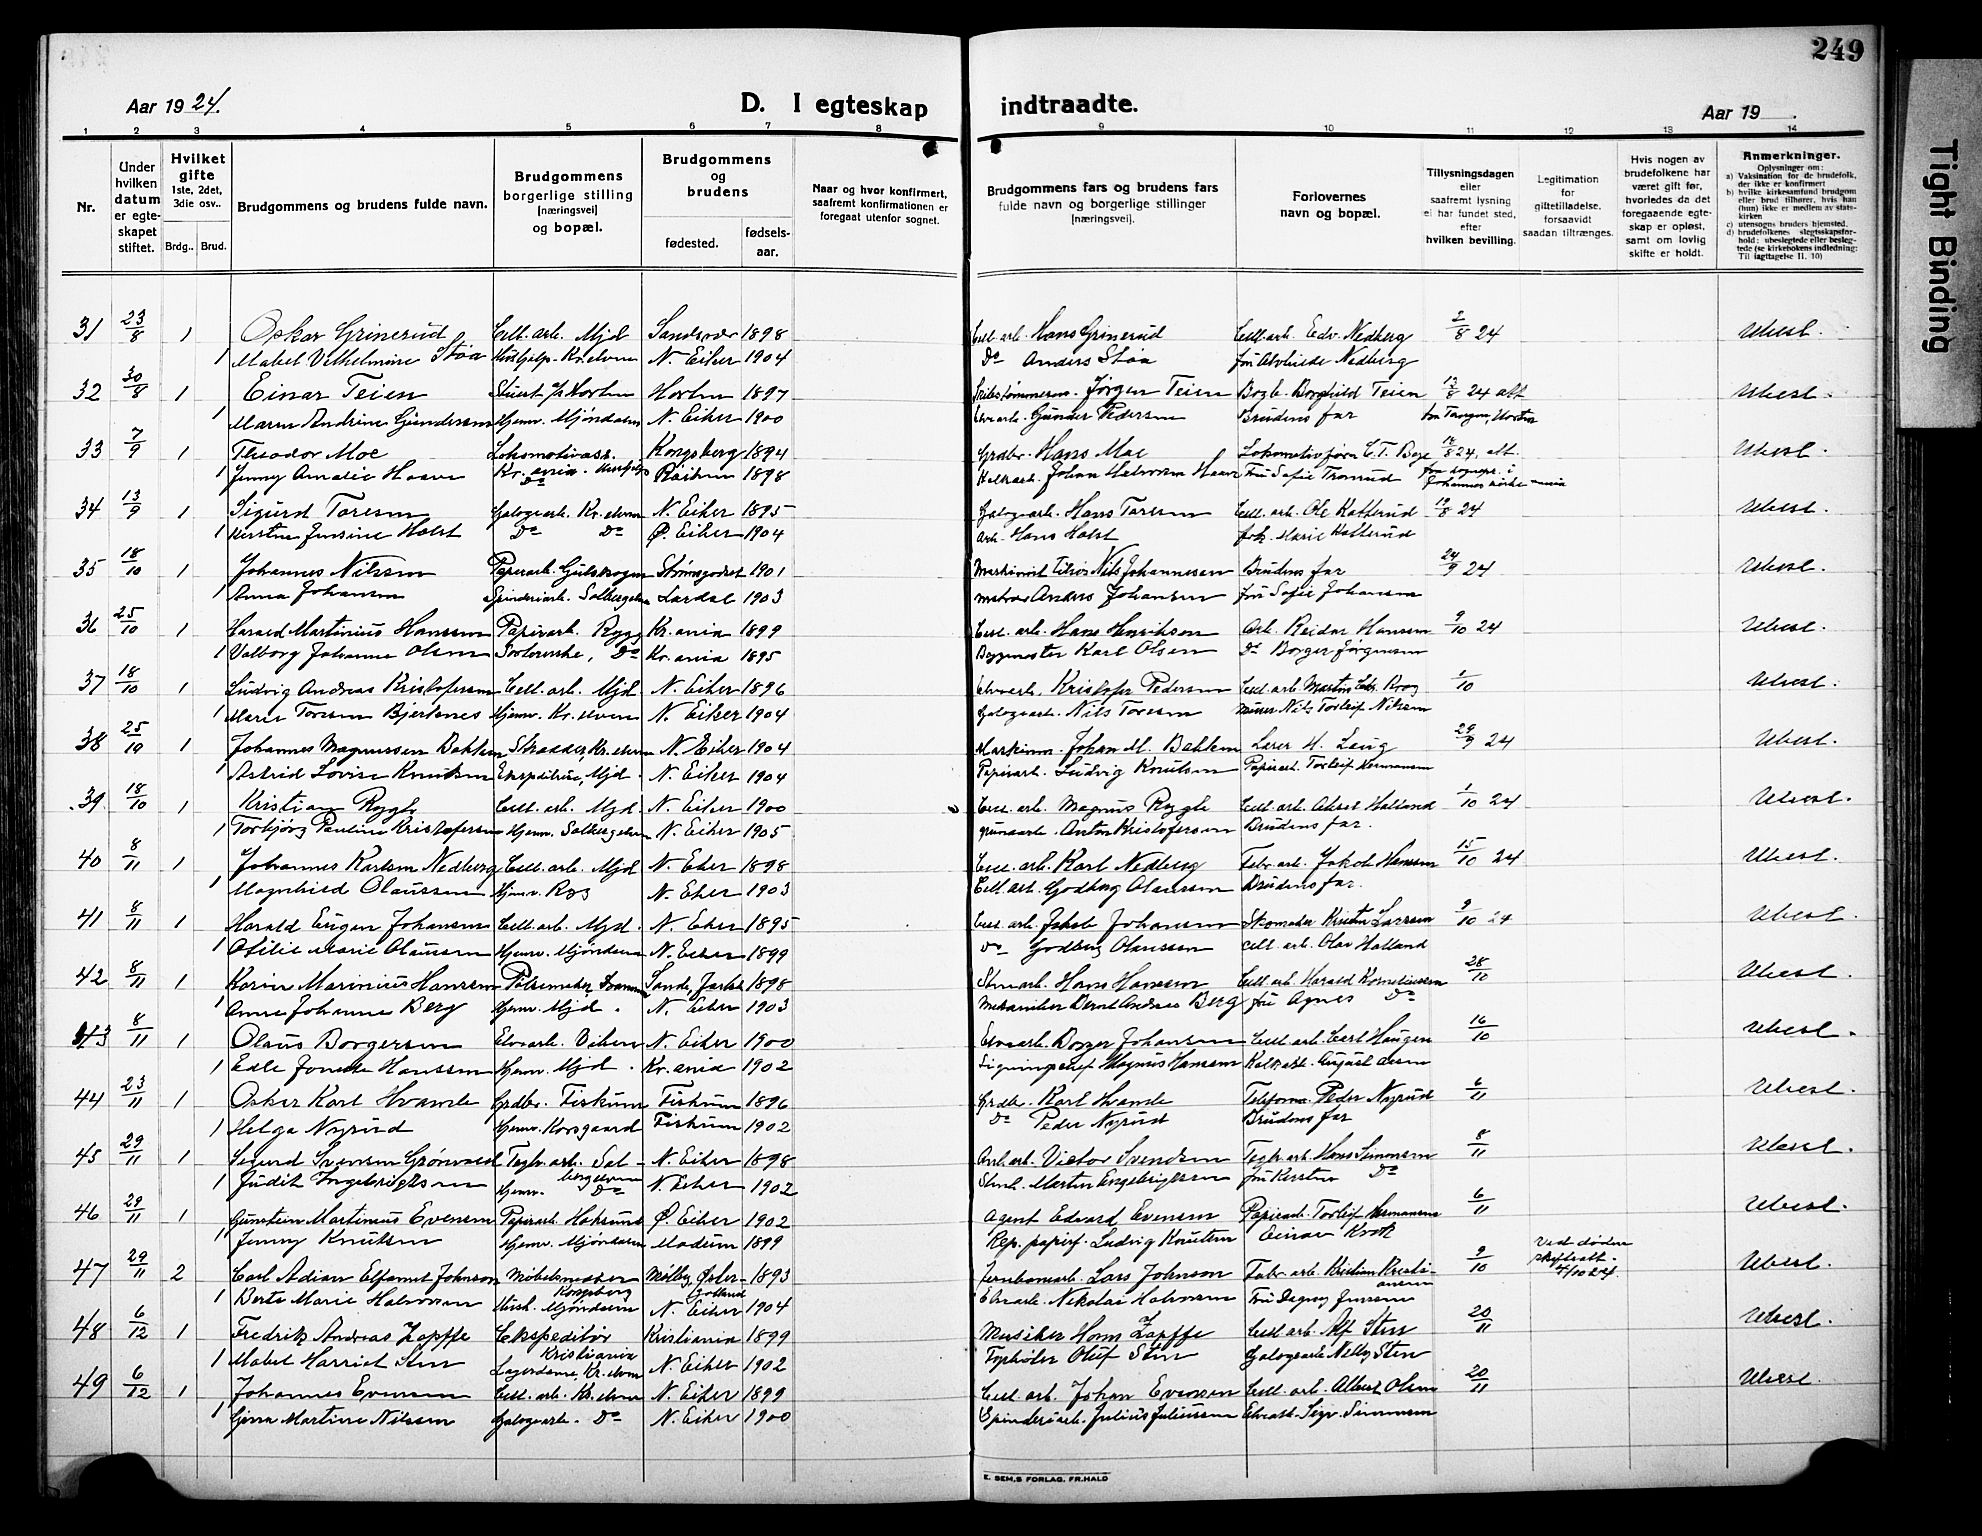 249
Aar 1924.
D. I egteskap
indtraadte.
Aar 19
Tight Binding
1 2 3 4 5 6 7 8 9 10 11 12 13 14
Nr.
Under hvilken datum er egteskapet stiftet.
Hvilket gifte 1ste, 2det, 3die osv..
Brdg.. Brud.
Brudgommens og brudens fulde navn.
Brudgommens borgerlige stilling [næringsvei] og bopæl.
Brudgommens og brudens
fødested.
fødselsaar.
Naar og hvor konfirmert, saafremt konfirmationen er foregaat utenfor sognet.
Brudgommens fars og brudens fars fulde navn og borgerlige stillinger [næringsvei].
Forlovernes navn og bopæl.
Tillysningsdagen eller saafremt lysning ei har fundet sted, efter hvilken bevilling.
Legitimation for giftetilladelse, forsaavidt saadan tiltrænges.
Hvis nogen av brudefolkene har været gift før, hvorledes da det foregaaende egteskap er opløst, samt om lovlig skifte er holdt.
Anmerkninger.
Oplysninger om:
a) Vaksination for de brudefolk, der ikke er konfirmert
b) hvilke kirkesamfund brudgom eller brud tilhører, hvis han (hun) ikke er medlem av statskirken
c) utensogns bruders hjemsted.
d) brudefolkenes slegtsskapsforhold: ubeslegtede eller beslegtede (se kirkebokens indledning: Til iagttagelse II. 10)
31 23/8 1 Oskar Grinerud Cell. arb. Mjd Sandsvær 1898 Cell. arb. Hans Grinerud Cell. arb. Edv. Nedberg 2/8 24 Ubesl.
1 Mabel Vilhelmine Støa Hushjelp. Kr. elven N. Eiker 1904 Do Anders Støa fru Alvhilde Nedberg
32 30/8 1 Einar Teien Horten 1897 Jørgen Teien Borghild Teien 13/8 24 att Ubesl.
1 Maren Andrine Gundersen Hjemv. Mjøndalen N. Eiker 1900 Elvearb. Gunder Pedersen Brudens far fra Tangen, Horten
33 7/9 1 Theodor Moe Lokomotivass. Kongsberg 1894 Grdbr. Hans Moe Lokomotivfører C. T. Boye 16/8 24, att. Ubesl.
1 Jenny Amalie Haave Kr.ania Røiken 1898 Johan Halvorsen Haave Fru Sofie Tronrud
34 13/9 1 Sigurd Toresen Galogearb. Kr. elven N. Eiker 1895 Galogearb. Hans Toresen Cell. arb. Ole Katterud 19/8 24 Ubesl.
1 Kirstine Jensine Holst Do Do Ø. Eiker 1904 Arb. Hans Holst frk. Marie Katterud
35 18/10 1 Johannes Nilsen Papirarb. Gulskogen Strømsgodset 1901 Nils Johannesen Brudens far 24/9 24 Ubesl.
1 Anna Johansen Spinderiarb. Solbergelven Lardal 1903 Anders Johansen fru Sofie Johansen
36 25/10 1 Harald Martinius Hanssen Papirarb. Rygg Kr.ania 1899 Cell. arb. Hans Henriksen Arb. Reidar Hansen 9/10 24 Ubesl.
1 Valborg Johanne Olsen Do Kr.ania 1895 Byggmester Karl Olsen Do Borger Jørgensen
37 18/10 1 Ludvig Andreas Kristofersen Cell. arb. Mjd. N. Eiker 1896 Elvearb. Kristofer Pedersen Cell. arb. Martin 1/10 Ubesl.
1 Marie Toresen Bjertnes Hjemv. Kr. elven N. Eiker 1904 Galogearb. Nils Toresen Murer Nils Torleif Nilsen
38 25/10 1 Johannes Magnussen Bakken Skrædder, Kr. elven N. Eiker 1904 Johan M. Bakken Lærer H. Laug 29/9 24 Ubesl.
1 Astrid Lovise Knutsen Ekspeditrice, Mjd. N. Eiker 1904 Papirarb. Ludvig Knutsen Papirarb. Torleif Hermansen
39 18/10 1 Kristian Rygh Cell. arb. Mjd. N. Eiker 1900 Cell. arb. Magnus Rygh Cell. arb. Aksel Halland 1/10 24 Ubesl.
1 Torbjørg Pauline Kristofersen Hjemv. Solbergelven N. Eiker 1905 Anton Kristofersen Brudens far.
40 8/11 1 Johannes Karlsen Nedberg Cell. arb. Mjd N. Eker 1898 Cell. arb. Karl Nedberg Fabr. arb. Jakob Hansen 15/10 24 Ubesl.
1 Magnhild Olaussen Hjemv. N. Eker 1903 Cell. arb. Godberg Olaussen Brudens far.
41 8/11 1 Harald Eugen Johansen Cell. arb. Mjd. N. Eker 1895 Cell. arb. Jakob Johansen Skomaker Kristen Larsen 9/10 24 Ubesl.
1 Otilie Marie Olaussen Hjemv. Mjøndalen N. Eiker 1899 Do Godberg Olaussen Cell. arb. Olav Halland
42 8/11 1 Karin Marinius Hansen Pølsemaker, Drammen Sande, Jarls. 1898 Hans Hansen Cell. arb. Harald Korneliussen 28/10 Ubesl.
1 Anne Johanne Berg Hjemv. Mjd. N. Eiker 1903 Mekaniker Bernt Andreas Berg fru Agnes Do
43 8/11 1 Olaus Borgersen Elvearb. Viken N. Eiker 1900 Elvearb. Borger Johansen Cell. arb. Carl Haugen 16/10 Ubesl.
1 Edle Jonette Hanssen Hjemv. Mjd. Kr.ania 1902 Magnus Hansen
44 23/11 1 Oskar Karl Hvamb Grdbr. Fiskum Fiskum 1896 Grdbr. Karl Hvamb Peder Nyrud 6/11 Ubesl.
1 Helga Nyrud Hjemv. Korsgaard Fiskum 1902 Do Peder Nyrud Brudens far
45 29/11 1 Sigurd Svensen Grønvold Teglv. arb. Solbergelven N. Eiker 1898 Victor Svendsen Teglv. arb. Hans Simensen 8/11 Ubesl.
1 Judit Ingebrigtsen Hjemv. Do N. Eiker 1902 Martin Engebrigtsen fru Kirstine Do
46 29/11 1 Gunstein Martinius Evensen Papirarb. Hoksund Ø. Eiker 1902 Agent Edvard Evensen Papirarb. Torleif Hermansen 6/11 Ubesl.
1 Jenny Knutsen Hjemv. Mjøndalen Modum 1899 Rep. papirf. Ludvig Knutsen Einar Krok
47 29/11 2 Carl Adian Elfamet Johnson Møbelsnekker Kongsberg Mølby, Øster-Gotland 1893 Jernbanearb. Lars Johnson Fabr. arb. Kristian Kristiansen 9/10 Ved døden skifteatt. 4/10 24. Ubesl.
1 Berte Marie Halvorsen Hush. Mjøndalen N. Eiker 1904 Elvearb. Nikolai Halvorsen Fru Dagny Jensen
48 6/12 1 Fredrik Andreas Zapffe Ekspeditør Kristiania Kristiania 1899 Musiker Zapffe Cell. arb. Alf Sten 20/11 Ubesl.
1 Mabel Harriet Sten Lagerdame, Kr. elven N. Eiker 1902 Oluf Sten Galogearb. Nelly Sten
49 6/12 1 Johannes Evensen Cell. arb. Kr. elven N. Eiker 1899 Cell. arb. Johan Evensen Cell. arb. Albert Olsen 20/11 Ubesl.
1 Martine Nilssen Galogearb. Do N. Eiker 1900 Spinderiarb. Julius Juliussen Elvearb. Sigv. Simensen
E. SEM,S FORLAG, FR.HALD